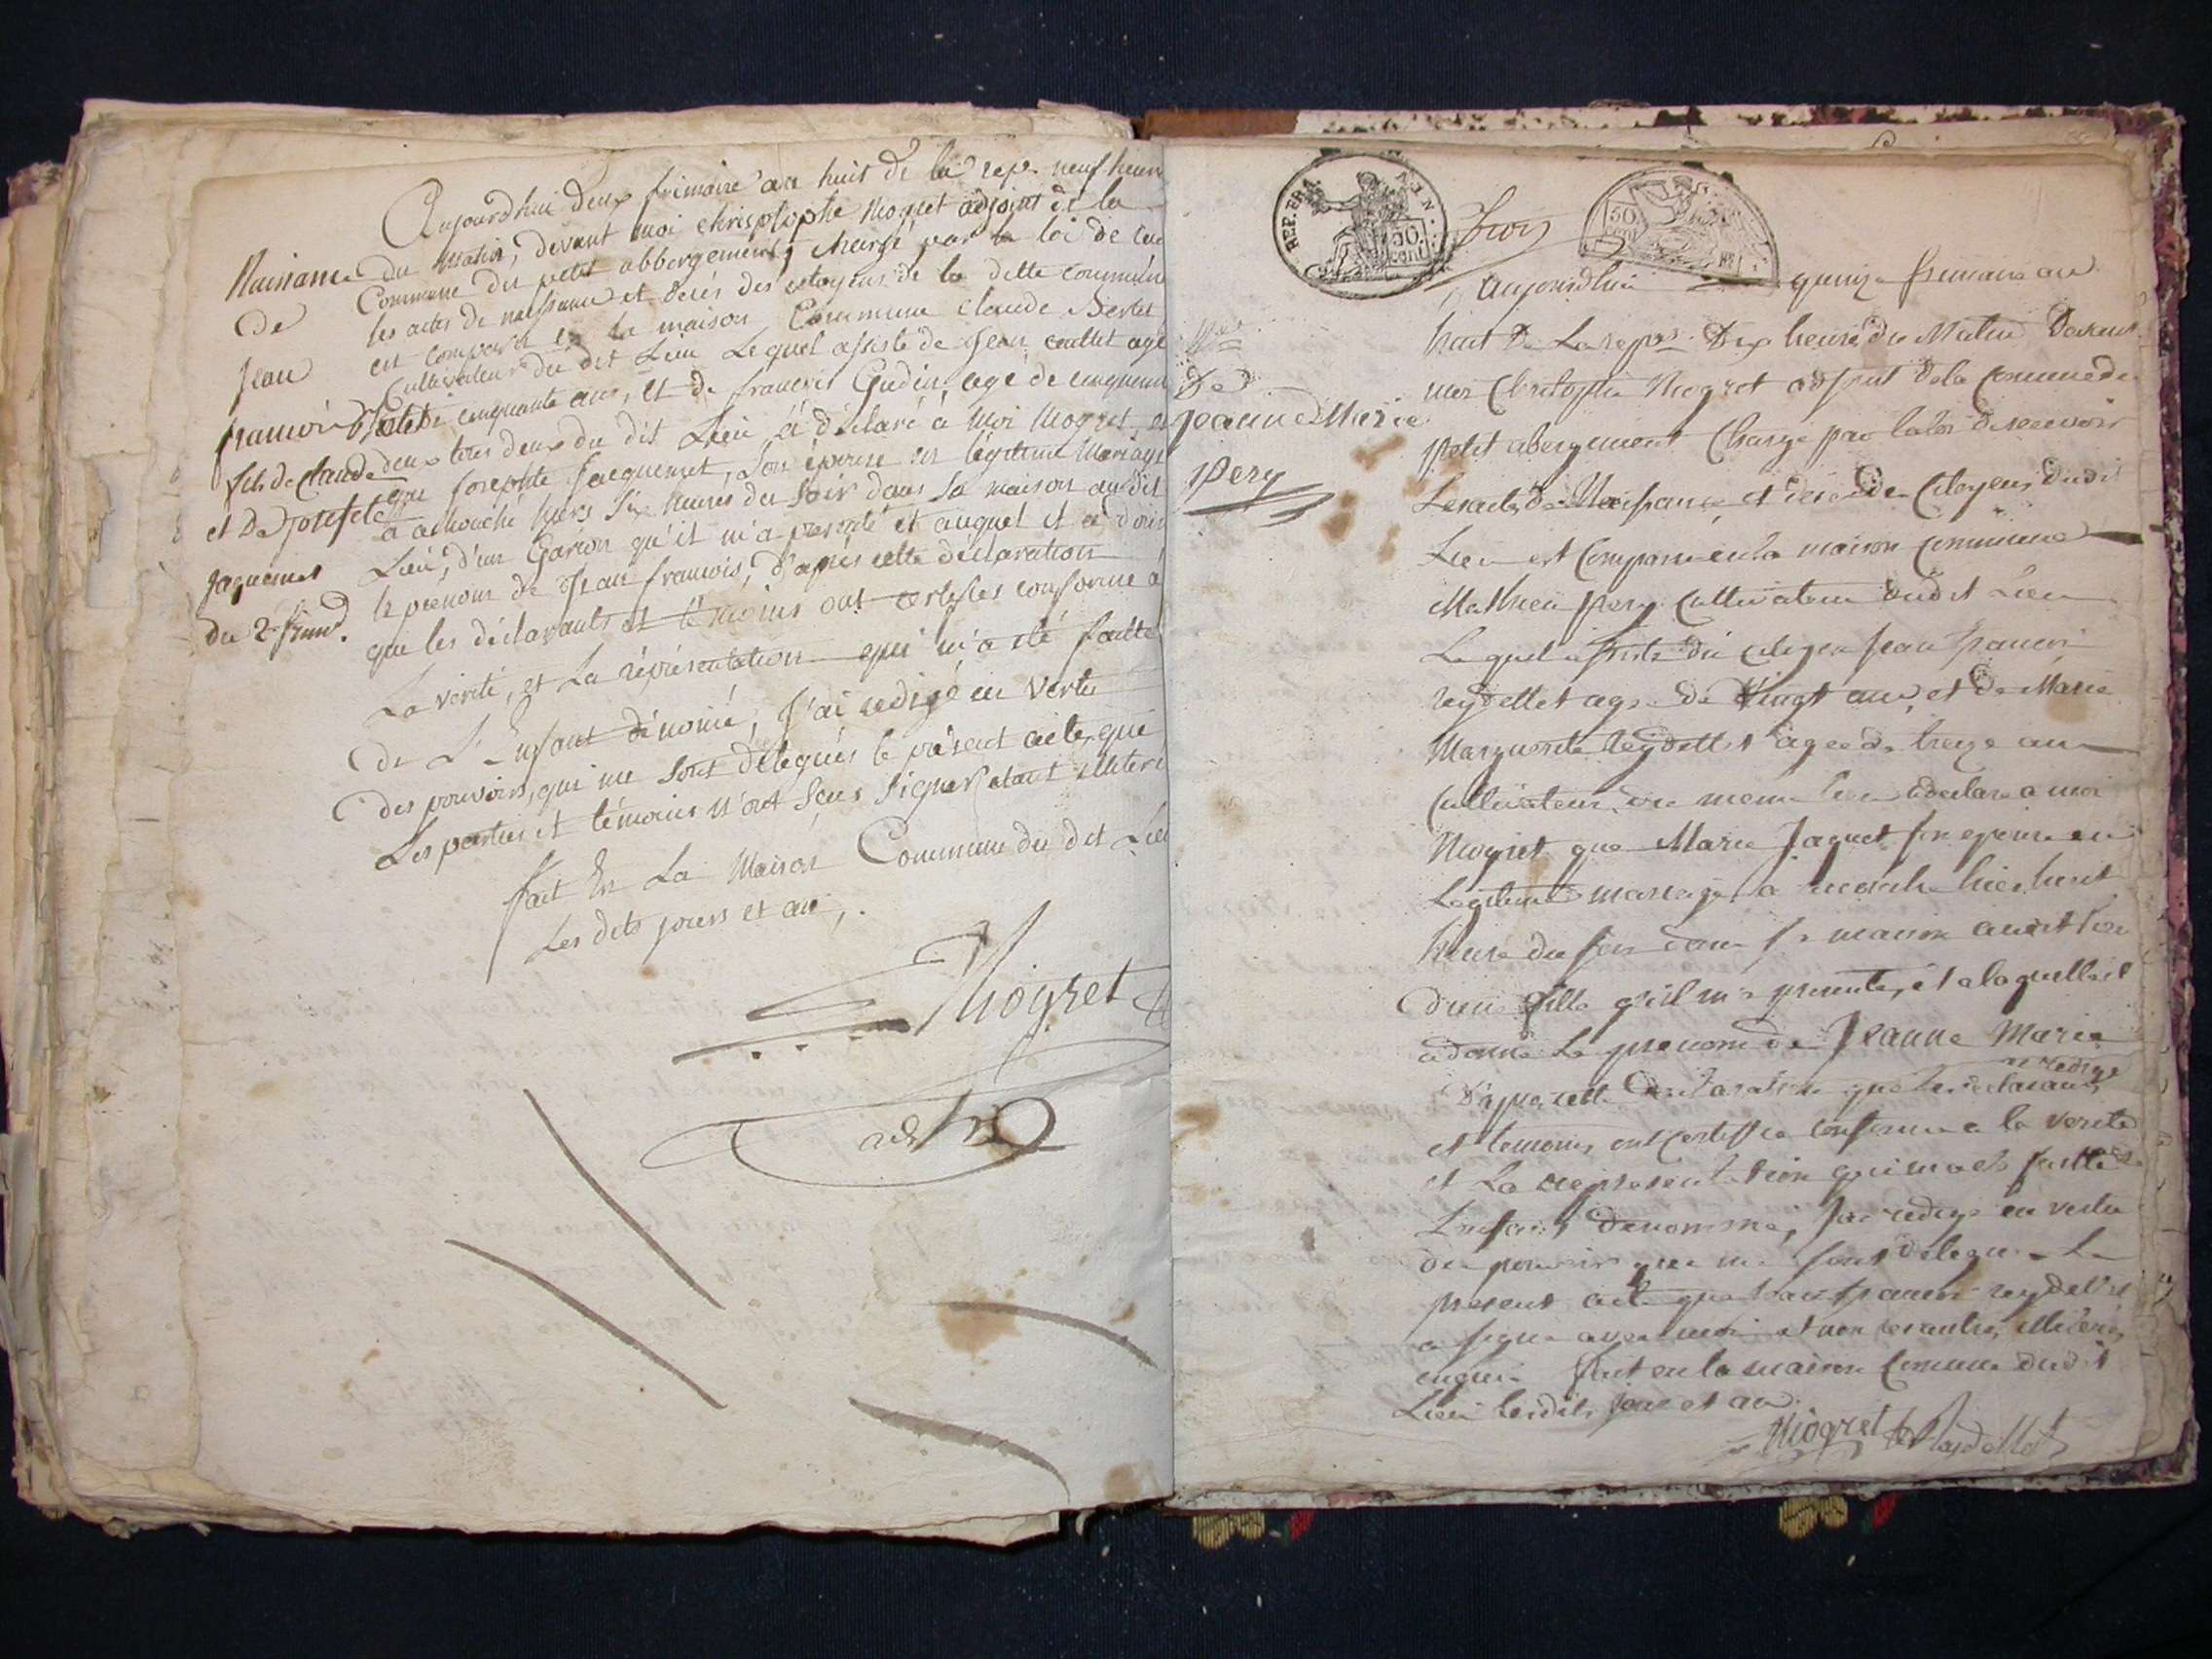 Aujourdhui deux frimaire an huit de la rep. neuf heure
du matin, devant moi chrisptophe Niogret adjoint de la
Commune du petit abbergement, chargé par la loi de
les actes de naissance et décés des citoyens de la ditte commune
est comparu en la maison Commune Claude Bertet
Cultivateur du dit Lieu Lequel assisté de Jean caillet agé
de cinquante ans, et de francois Gudin agé de cinquante
deux tous deux du dit Lieu à déclaré à moi Niogret,
que Josephte Jacquemet, son épouse en légitime Mariage
à accouché hiers Six heures du Soir dans sa maison au dit
Lieu, d'un Garcon qu'il m'a presenté et auquel il a donné
le prenom de Jean francois, d'apres cette déclaration
que les déclarants et témoins ont certifiés conforme à
La vérité, et La représentation qui m'a été faitte
de L'Enfant dénomé, J'ai redigé en vertu
des pouvoirs, qui me sont délégués le présent acte, que
Les parties et témoins n'ont Sçus Signer étant illiteré
fait En La Maison Commune du dit Lieu
Les dits jours et an,.
Niogret
adj
Naissance
de
Jean
francois Bertet
fils de Claude
et De Josefete
Jaquemet
du 2 frim.
REP. FRA.
50
cent
50
cent
Aujourdhui quinze frimaire an
huit De La repu. Dix heure du Matin Devant
moi Christophe Niogret adjoint de la Commune du
petit abergement Chargé par la loi de recevoir
Les actes de Naissance et décés des Citoyens dudit
Lieu est Comparu en la maison commune
Mathieu Pery Cultivateur dudit Lieu
Lequel assisté du citoyen Jean francois
reydellet age de Vingt ans, et de Marie
Marguerite Reydellet agee de treize ans
Cultivateurs du meme lieu a declare a moi
Niogret que Marie Jaquet son epouse en
Legitime mariage a accouche hier huit
heure du soir dans sa maison audit lieu
d'une fille quil m'a presente, et a laquelle il
a donne Le prenom de Jeanne Marie
D'apres cette Declaration que les declarants
et temoins ont certiffie conforme a la verite
et La representation qui m'a ete faitte de
L'enfant denommé, j'ai redige en vertu
des pouvoir que me sont delegue Le
present acte que Jean francois reydellet
a signe avec moi et non les autres illiteré
enquis fait en la maison commune dudit
Lieu lesdits jour et an.
Niogret Reydellet
De
Jeanne Marie
Pery